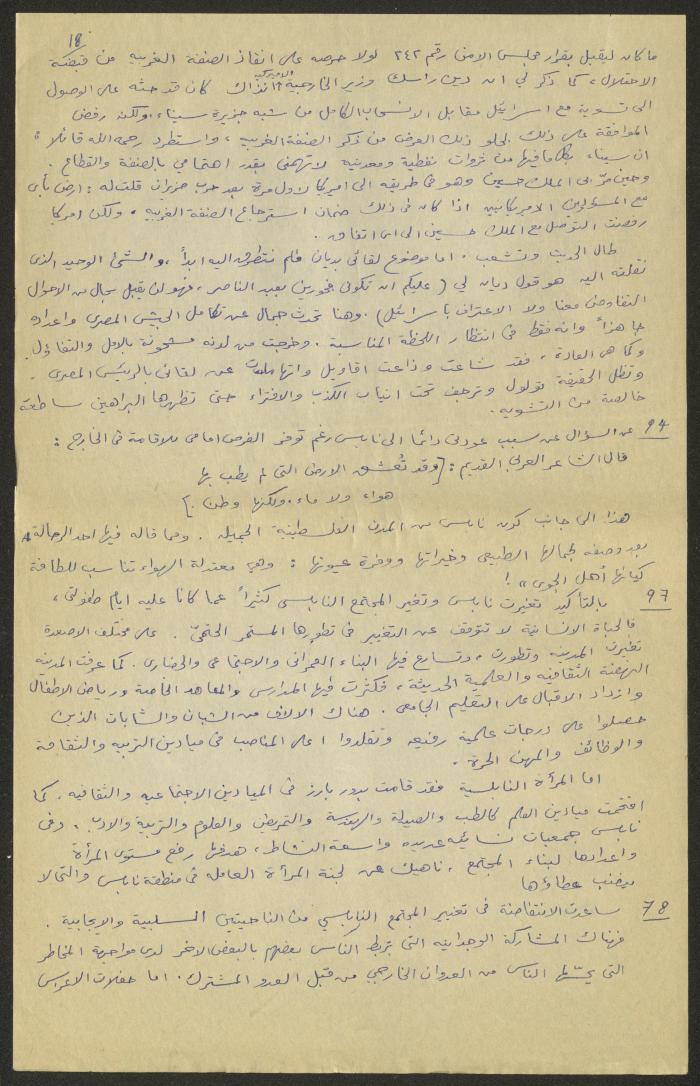 18
ما كان ليقبل بقرار مجلس الامن رقم ٢٤٢ لولا حرصه على انقاذ الضفة الغربيه من قبضة
الاحتلال، كما ذكر لي ان دين راسك وزير الخارجية الاميركي آنذاك كان قد حثه على الوصول
الى تسوية مع اسرائيل مقابل الانسحاب الكامل من شبه جزيرة سيناء، ولكنه رفض
الموافقة على ذلك لخلو ذلك العرض من ذكر الضفة الغربيه، واستطرد رحمه الله قائلا:
ان سيناء بكل ما فيها من ثروات نفطية ومعدنيه لا تهمني بقدر اهتمامي بالضفة والقطاع.
وحين مرّ الى الملك حسين وهو في طريقه الى امريكا لاول مرة بعد حرب حزيران قلت له: ارض بأي
مع المسؤولين الامريكانيين اذا كان في ذلك ضمان استرجاع الضفة الغربيه، ولكن امريكا
رفضت التوصل مع الملك حسين الى اي اتفاق.
طال الحديث وتشعب. اما موضوع لقائي بديان فلم نتطرق اليه ابدأ، والشئ الوحيد الذي
نقلته اليه هو قول ديان لي (عليكم ان تكونوا فخورين بعبد الناصر، فهو لن يقبل بحال من الاحوال
التفاوض معنا ولا الاعتراف باسرائيل). وهنا تحدث جمال عن تكامل الجيش المصري واعداده
جاهزاً وانه فقط في انتظار اللحظة المناسبة. وخرجت من لدنه مشحونة بالامل والتفاؤل
وكما هي العادة، فقد شاعت وذاعت اقاويل واتهامات عن لقائي بالرئيس المصري.
وتظل الحقيقة تولول وترجف تحت انياب الكذب والافتراء حتى تظهرها البراهين ساطعة
خالصة من التشويه.
94 عن السؤال عن سبب عودتي دائما الى نابس رغم توفر الفرص امامي للاقامة في الخارج:
قال الشاعر العربي القديم: [وقد تُعشق الارض التي لم يطب بها
هواء ولا ماء، ولكنها وطن.]
هذا الى جانب كون نابس من المدن الفلسطينية الجميله. ومما قاله فيها احد الرحالة
بعد وصفه لجمالها الطبيعي وخيراتها ووفرة عيونها: وهي معتدلة الهواء تناسب للطافة
كيانها أهل الجوى"!
97 بالتأكيد تغيرت نابس وتغير المجتمع النابلسي كثيراً عما كانا عليه ايام طفولتي،
فالحياة الانسانية لا تتوقف عن التغيير في تطورها المستمر الحتميّ. على مختلف الاصعدة
تغيرت المدينه وتطورت، وتسارع فيها البناء العمراني والاجتماعي والحضاري. كما عرفت المدينه
النهضة الثقافيه والعلمية الحديثة، فكثرت فيها المدارس والمعاهد الخاصة ورياض الاطفال
وازداد الاقبال على التعليم الجامعي. هناك الالاف من الشبان والشابات الذين
حصلوا على درجات علمية رفيعه وتقلدوا اعلى المناصب في ميادين التربيه والثقافة
والوظائف والمهن الحرة.
اما المرأة النابلسية فقد قامت بدور بارز في الميادين الاجتماعيه والثقافيه. كما
اقتحمت ميادين العلم كالطب والصيدلة والهندسة والتمريض والعلوم والتربية والادب. وفي
نابس جمعيات نسائيه عديده واسعة النشاط، هدفها رفع مستوى المرأة
واعدادها لبناء المجتمع، ناهيك عن لجنة المرأة العامله في منطقة نابس والتي لا
ينضب عطاؤها
78 ساعدت الانتفاضة في تغيير المجتمع النابلسي من الناحيتين السلبية والايجابية.
فهناك المشاركة الوجدانيه التي تربط الناس بعضهم بالبعض الاخر لدى مواجهة المخاطر
التي يحسّها الناس من العدوان الخارجي من قبل العدو المشترك. اما حفلات الاعراس